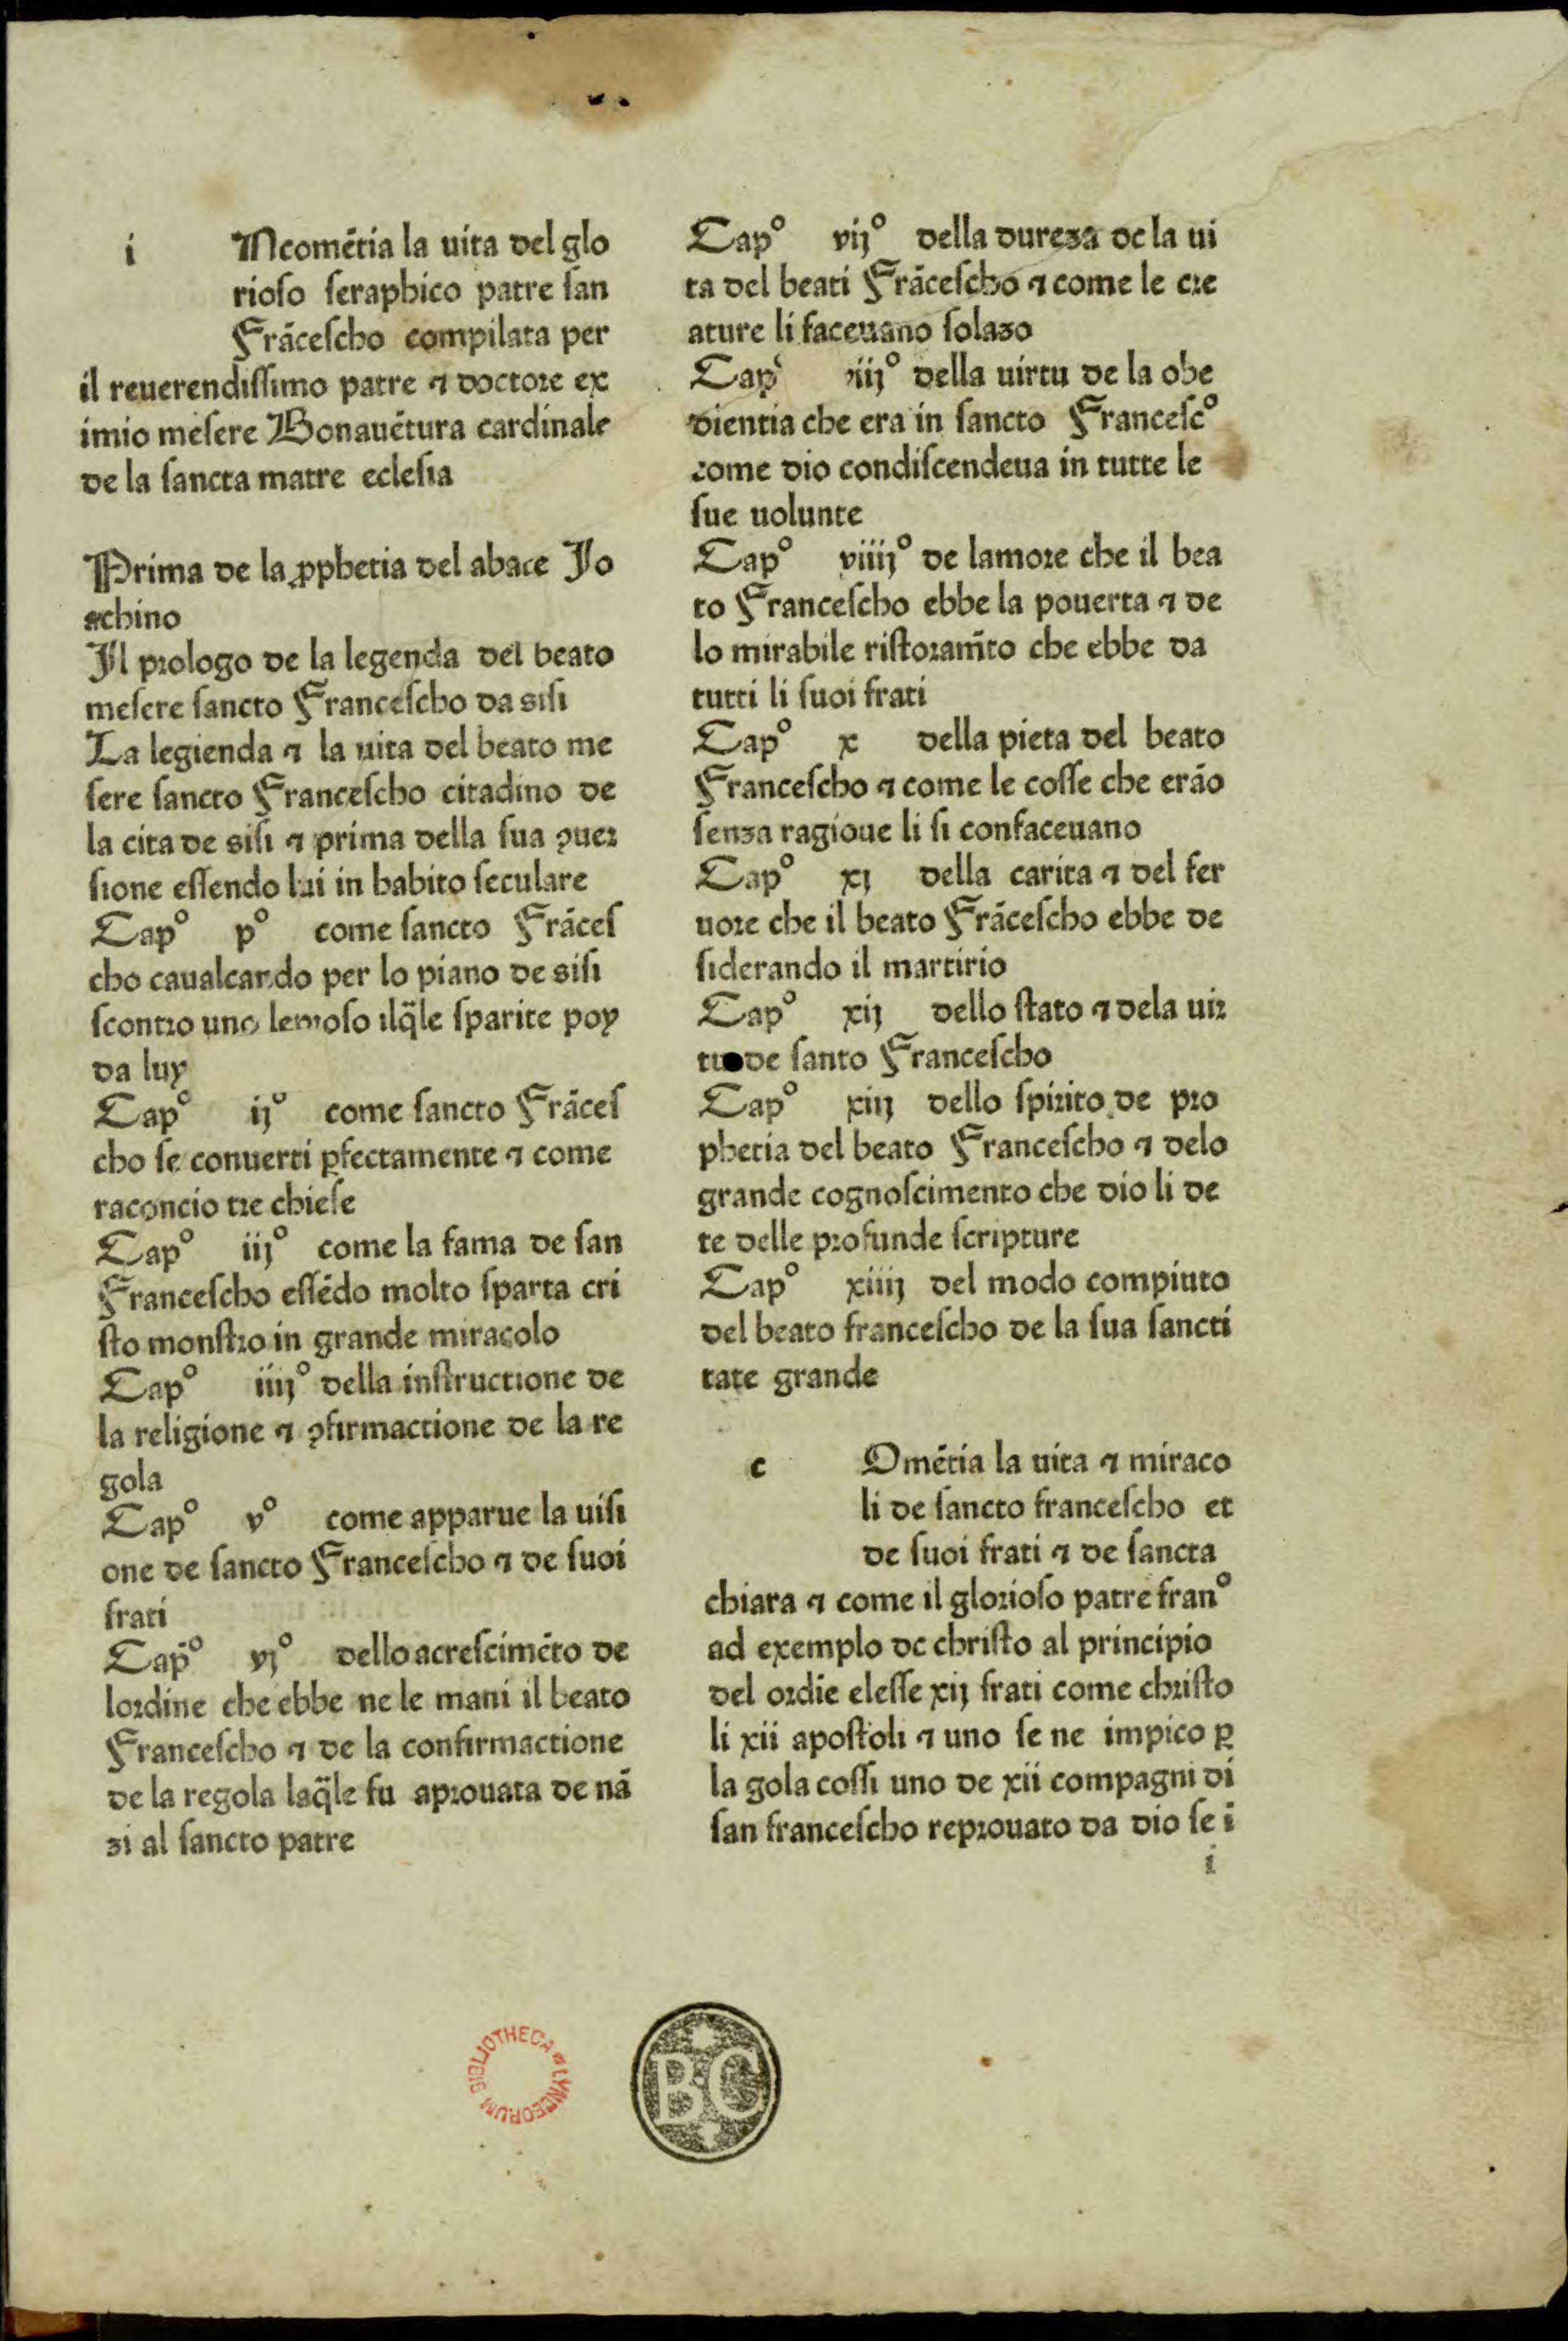 i Ncomētia la uita del glo
rioſo ſeraphico patre ſan
Frāceſcho compilata per
il reuerendiſſimo patre ⁊ doctore ex
imio meſere Bonauētura cardinale
de la ſancta matre ecleſia
Prima de la ꝓphetia del abate Jo
achino
Il prologo de la legenda del beato
meſere ſancto Franceſcho da siſi
La legienda ⁊ la uita del beato me
ſere ſancto Franceſcho citadino de
la cita de siſi ⁊ prima della ſua ꝯuer
ſione eſſendo lui in habito ſeculare
Capº pº come ſancto Frāceſ
cho caualcando per lo piano de siſi
ſcontro uno leproſo ilq̄le ſparite poy
da luy
Capº ijº come ſancto Frāceſ
cho ſe conuerti ꝑfectamente ⁊ come
raconcio tre chieſe
Capº iijº come la fama de ſan
Franceſcho eſſēdo molto ſparta cri
ſto monſtro in grande miracolo
Capº iiijº della inſtructione de
la religione ⁊ ꝯfirmactione de la re
gola
Capº vº come apparue la uiſi
one de ſancto Franceſcho ⁊ de ſuoi
frati
Capº vjº dello acreſcimēto de
lordine che ebbe ne le mani il beato
Franceſcho ⁊ de la confirmactione
de la regola laq̄le fu aprouata de nā
zi al ſancto patre
Capº vijº della dureza de la ui
ta del beati Frāceſcho ⁊ come le cre
ature li faceuano ſolazo
Capº viijº della uirtu de la obe
dientia che era in ſancto Franceſcº
come dio condiſcendeua in tutte le
ſue uolunte
Capº viiijº de lamore che il bea
to Franceſcho ebbe la pouerta ⁊ de
lo mirabile riſtoram̄to che ebbe da
tutti li ſuoi frati
Capº x della pieta del beato
Franceſcho ⁊ come le coſſe che erāo
ſenza ragioue li ſi confaceuano
Capº xj della carita ⁊ del fer
uore che il beato Frāceſcho ebbe de
ſiderando il martirio
Capº xij dello ſtato ⁊ dela uir
tu de ſanto Franceſcho
Capº xiij dello ſpirito de pro
phetia del beato Franceſcho ⁊ delo
grande cognoſcimento che dio li de
te delle profunde ſcripture
Capº xiiij del modo compiuto
del beato franceſcho de la ſua ſancti
tate grande
c Omētia la uita ⁊ miraco
li de ſancto franceſcho et
de ſuoi frati ⁊ de ſancta
chiara ⁊ come il glorioſo patre franº
ad exemplo de chriſto al principio
del ordie eleſſe xij frati come chriſto
li xii apoſtoli ⁊ uno ſe ne impico ꝑ
la gola coſſi uno de xii compagni di
ſan franceſcho reprouato da dio ſe i
i
BIBLIOTHECA LYNCEORUM
BC